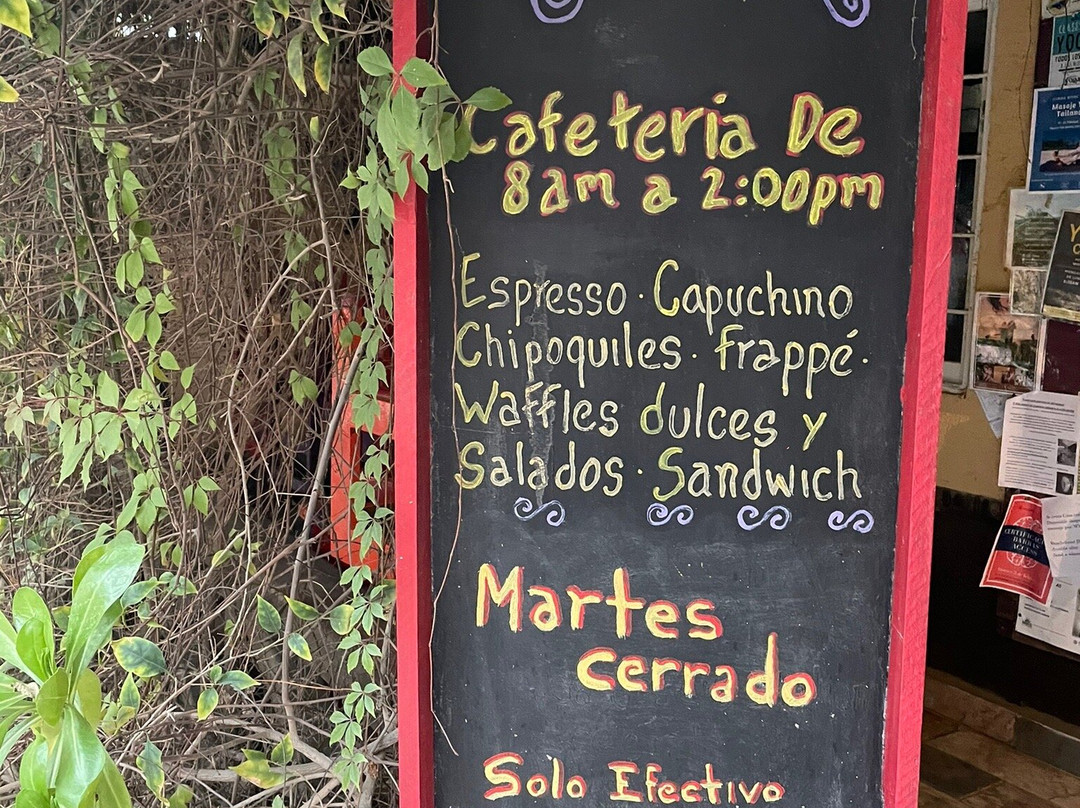 Cafeteria De
8am a 2:00pm
Espresso · Capuchino
Chipoquiles · frappé ·
Waffles dulces y
Salados · Sandwich
Martes
cerrado
Solo Efectivo
Masaje
Tailan
CERTIFICAC
BARRAS
ACCESS